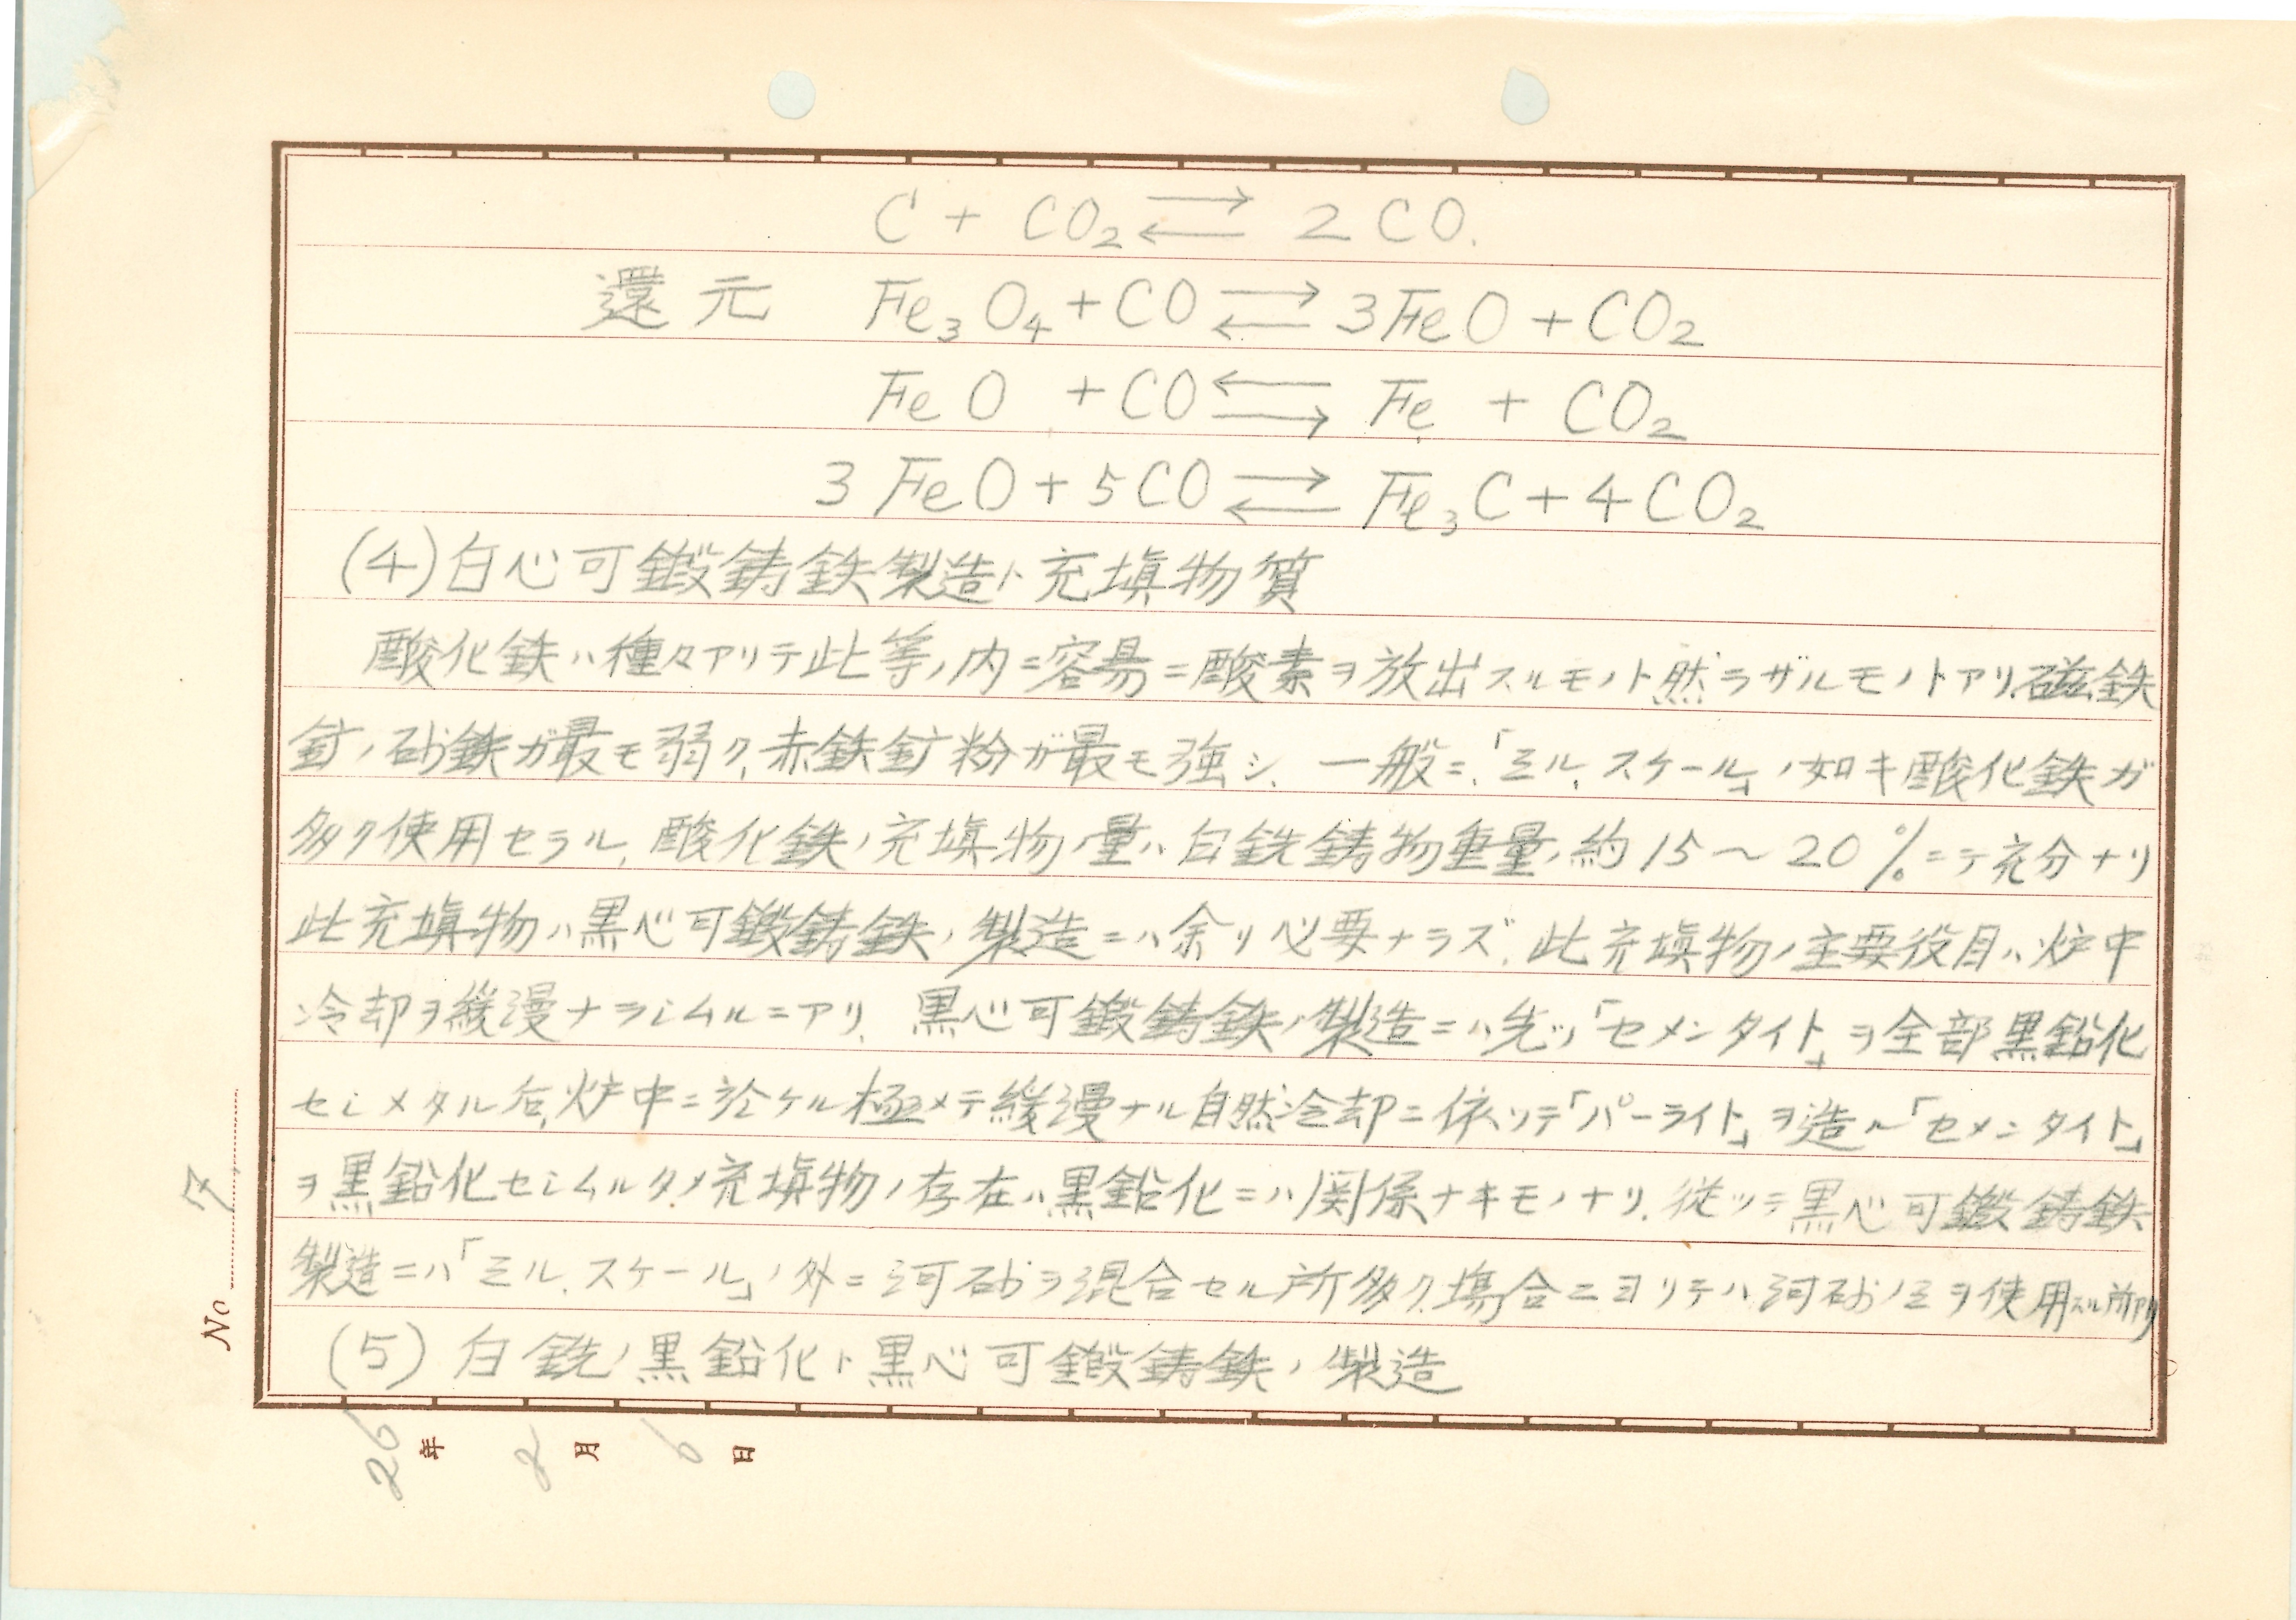 C + CO₂ ⇄ 2CO.
還元 Fe₃O₄ + CO ⇄ 3FeO + CO₂
FeO + CO ⇆ Fe + CO₂
3FeO + 5CO ⇄ Fe₃C + 4CO₂
(4)白心可鍛鋳鉄製造ト充填物質
酸化鉄ハ種々アリテ此等ノ内ニ容易ニ酸素ヲ放出スルモノト然ラザルモノトアリ.磁鉄
鉱、砂鉄ガ最モ弱ク、赤鉄鉱粉ガ最モ強シ、一般ニ、「ミル、スケール」ノ如キ酸化鉄ガ
多ク使用セラル、酸化鉄ノ充填物ノ量ハ白銑鋳物重量ノ約15〜20%ニテ充分ナリ
此充填物ハ黒心可鍛鋳鉄ノ製造ニハ余リ必要ナラズ.此充填物ノ主要役目ハ炉中
冷却ヲ緩漫ナラシムルニアリ、黒心可鍛鋳鉄ノ製造ニハ先ヅ「セメンタイト」ヲ全部黒鉛化
セシメタル后、炉中ニ於ケル極メテ緩漫ナル自然冷却ニ依リテ「パーライト」ヲ造ル「セメンタイト」
ヲ黒鉛化セシムルタメ充填物ノ存在ハ黒鉛化ニハ関係ナキモノナリ.従ッテ黒心可鍛鋳鉄
製造ニハ「ミル.スケール」ノ外ニ河砂ヲ混合セル所多ク、場合ニヨリテハ河砂ノミヲ使用スル所アリ
(5) 白銑ノ黒鉛化ト黒心可鍛鋳鉄ノ製造
No 7
26年 2月 6日